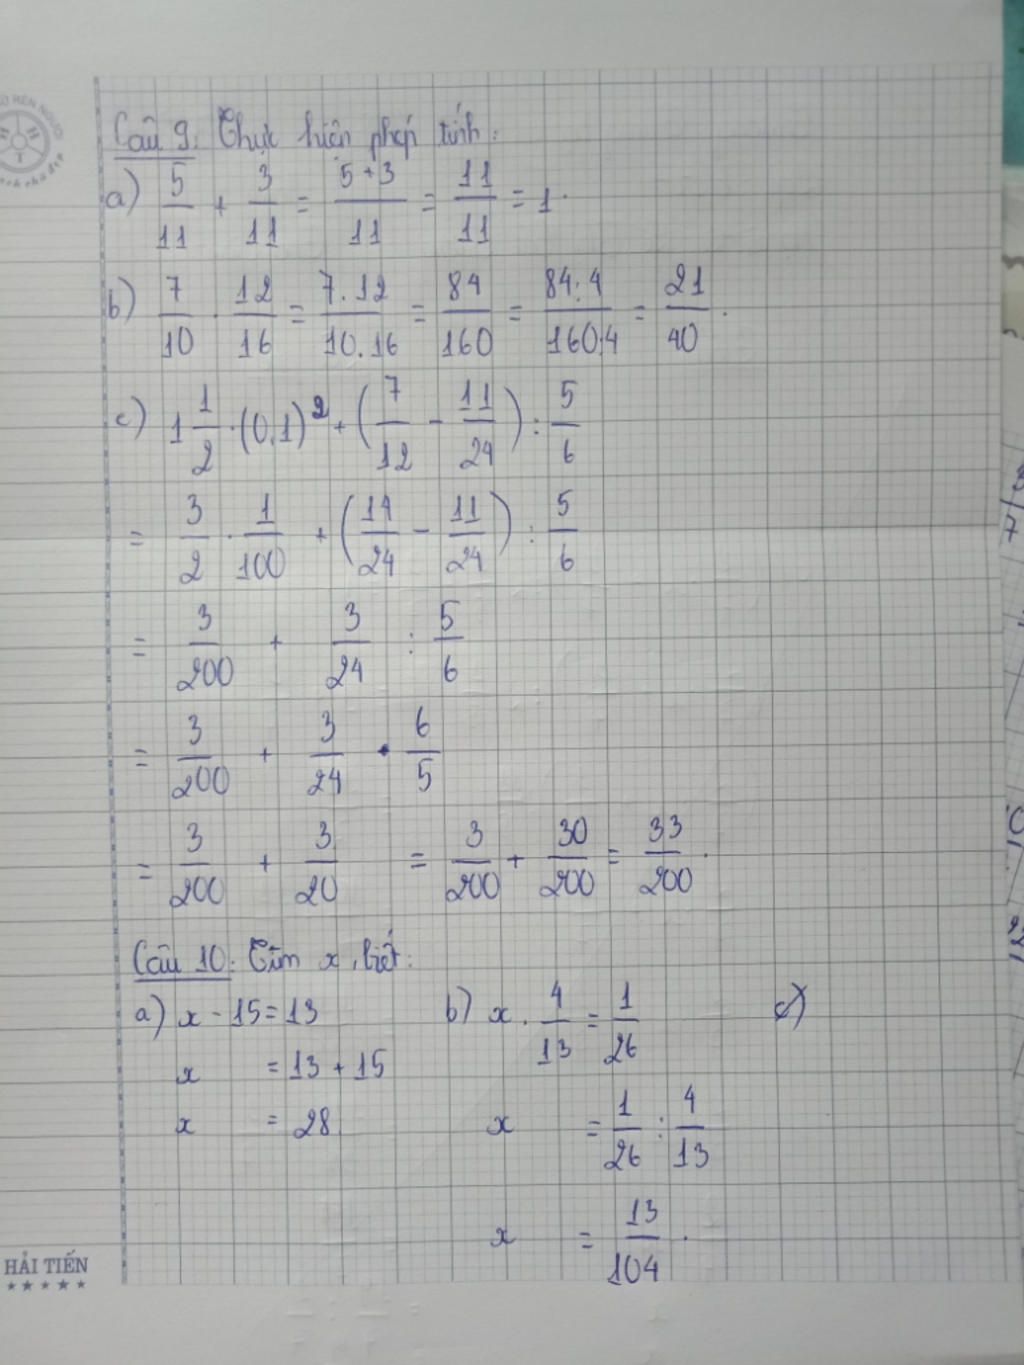 Câu 9: Thực hiện phép tính:
a) 5/11 + 3/11 = 5+3/11 = 11/11 = 1.
b) 7/10 . 12/16 = 7.12/10.16 = 84/160 = 84:4/160:4 = 21/40.
c) 1 1/2 . (0,1)² + (7/12 - 11/24) : 5/6
= 3/2 . 1/100 + (14/24 - 11/24) : 5/6
= 3/200 + 3/24 : 5/6
= 3/200 + 3/24 . 6/5
= 3/200 + 3/20 = 3/200 + 30/200 = 33/200.
Câu 10: Tìm x, biết:
a) x - 15 = 13 b) x . 4/13 = 1/26 c)
x = 13 + 15
x = 28 x = 1/26 : 4/13
x = 13/104.
HẢI TIẾN